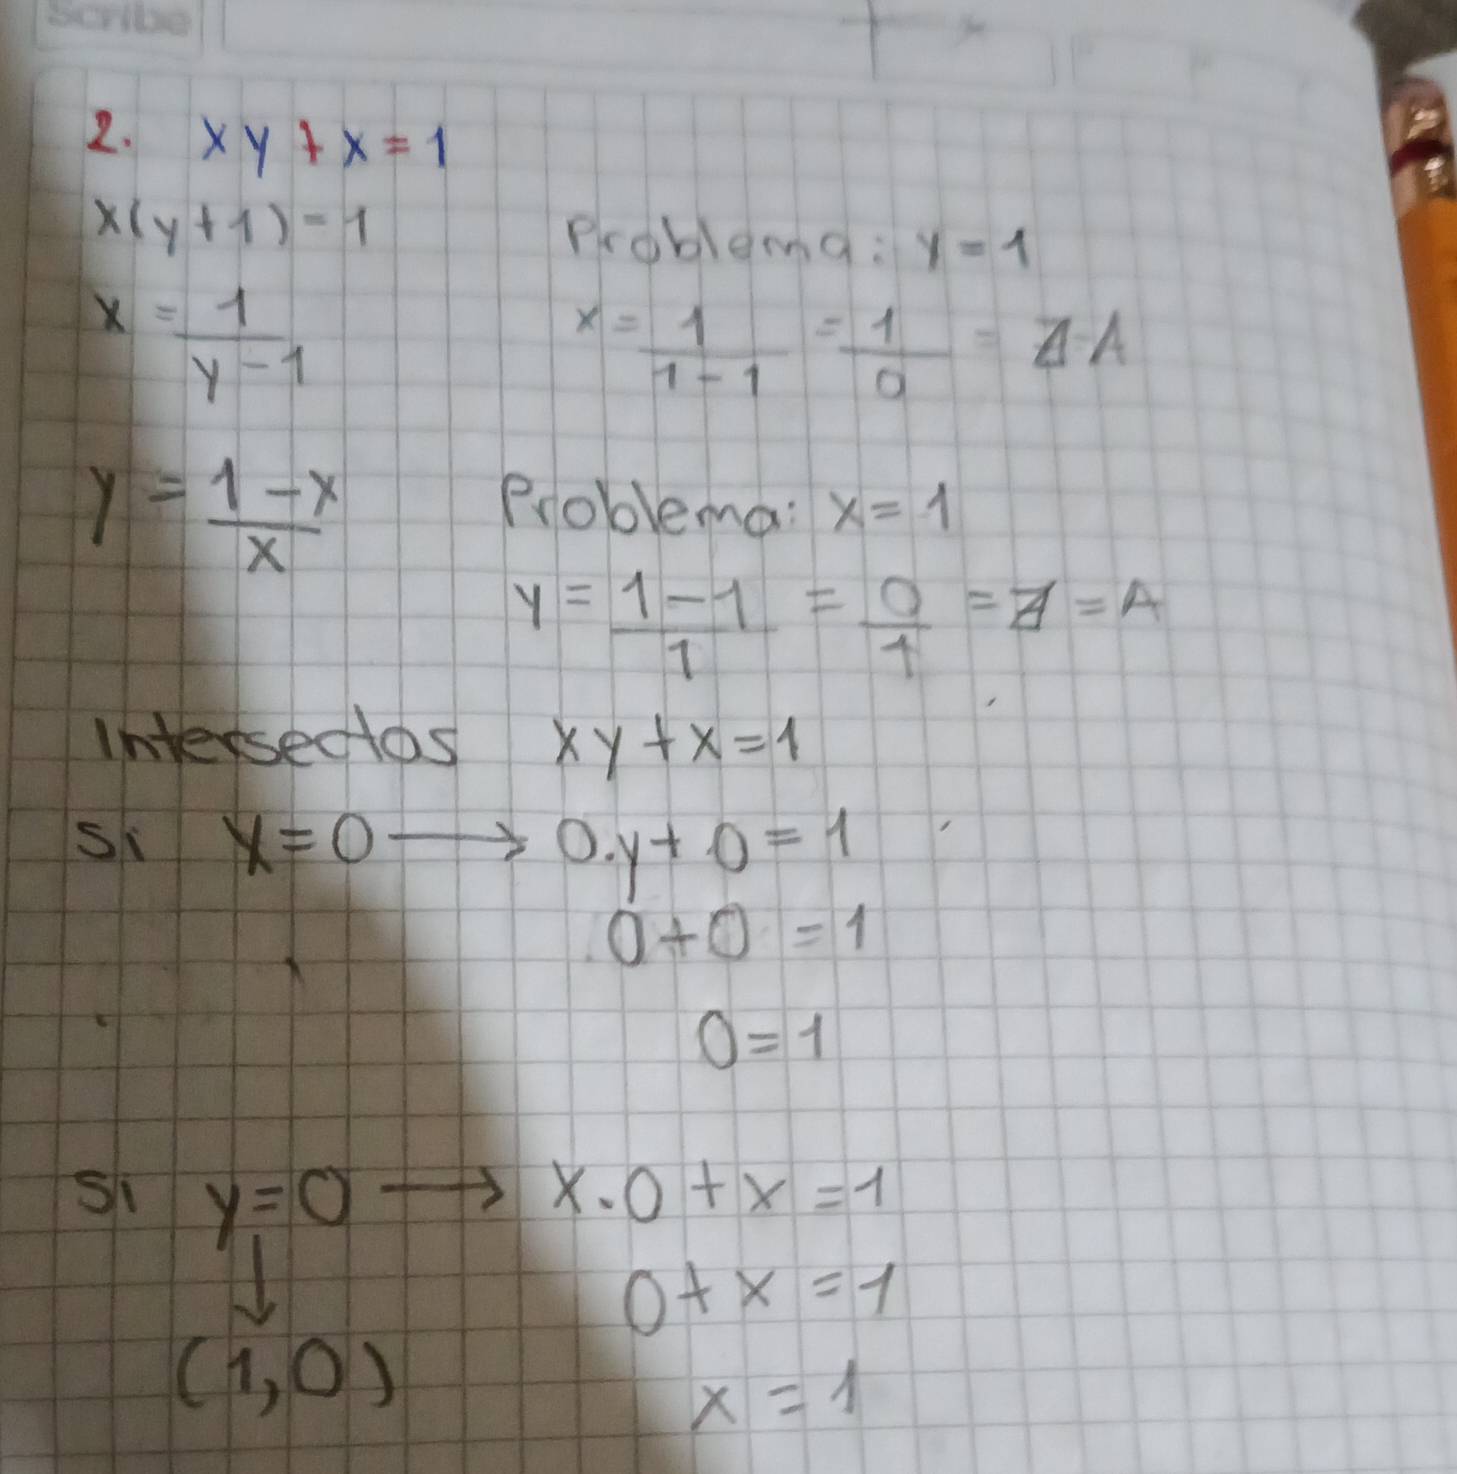 Scribe
x
2. xy + x = 1
x(y + 1) = 1
Problema: y = 1
x = 1/(y - 1)
x = 1/(1 - 1) = 1/0 = ∄ A
y = (1 - x)/x
Problema: x = 1
y = (1 - 1)/1 = 0/1 = ∄ = A
Intersectos xy + x = 1
Si x = 0 → 0.y + 0 = 1
0 + 0 = 1
0 = 1
Si y = 0 → x.0 + x = 1
↓ 0 + x = 1
(1,0) x = 1